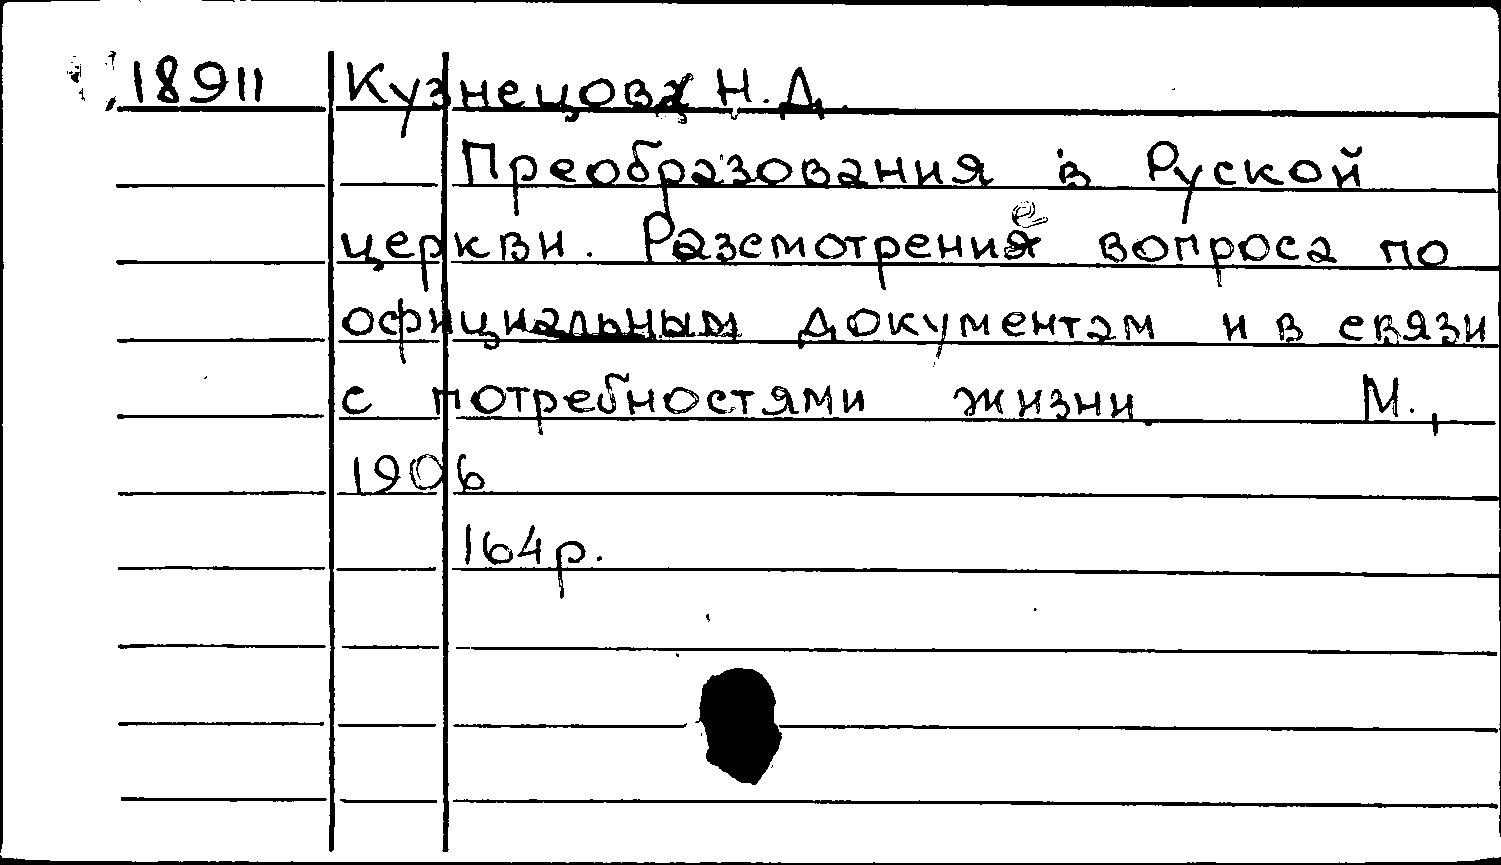 18911 Кузнецов Н.Д.
Преобразования в Руской
церкви. Разсмотрение вопроса по
официальным документам и в связи
с потребностями жизни. М.,
1906
164р.